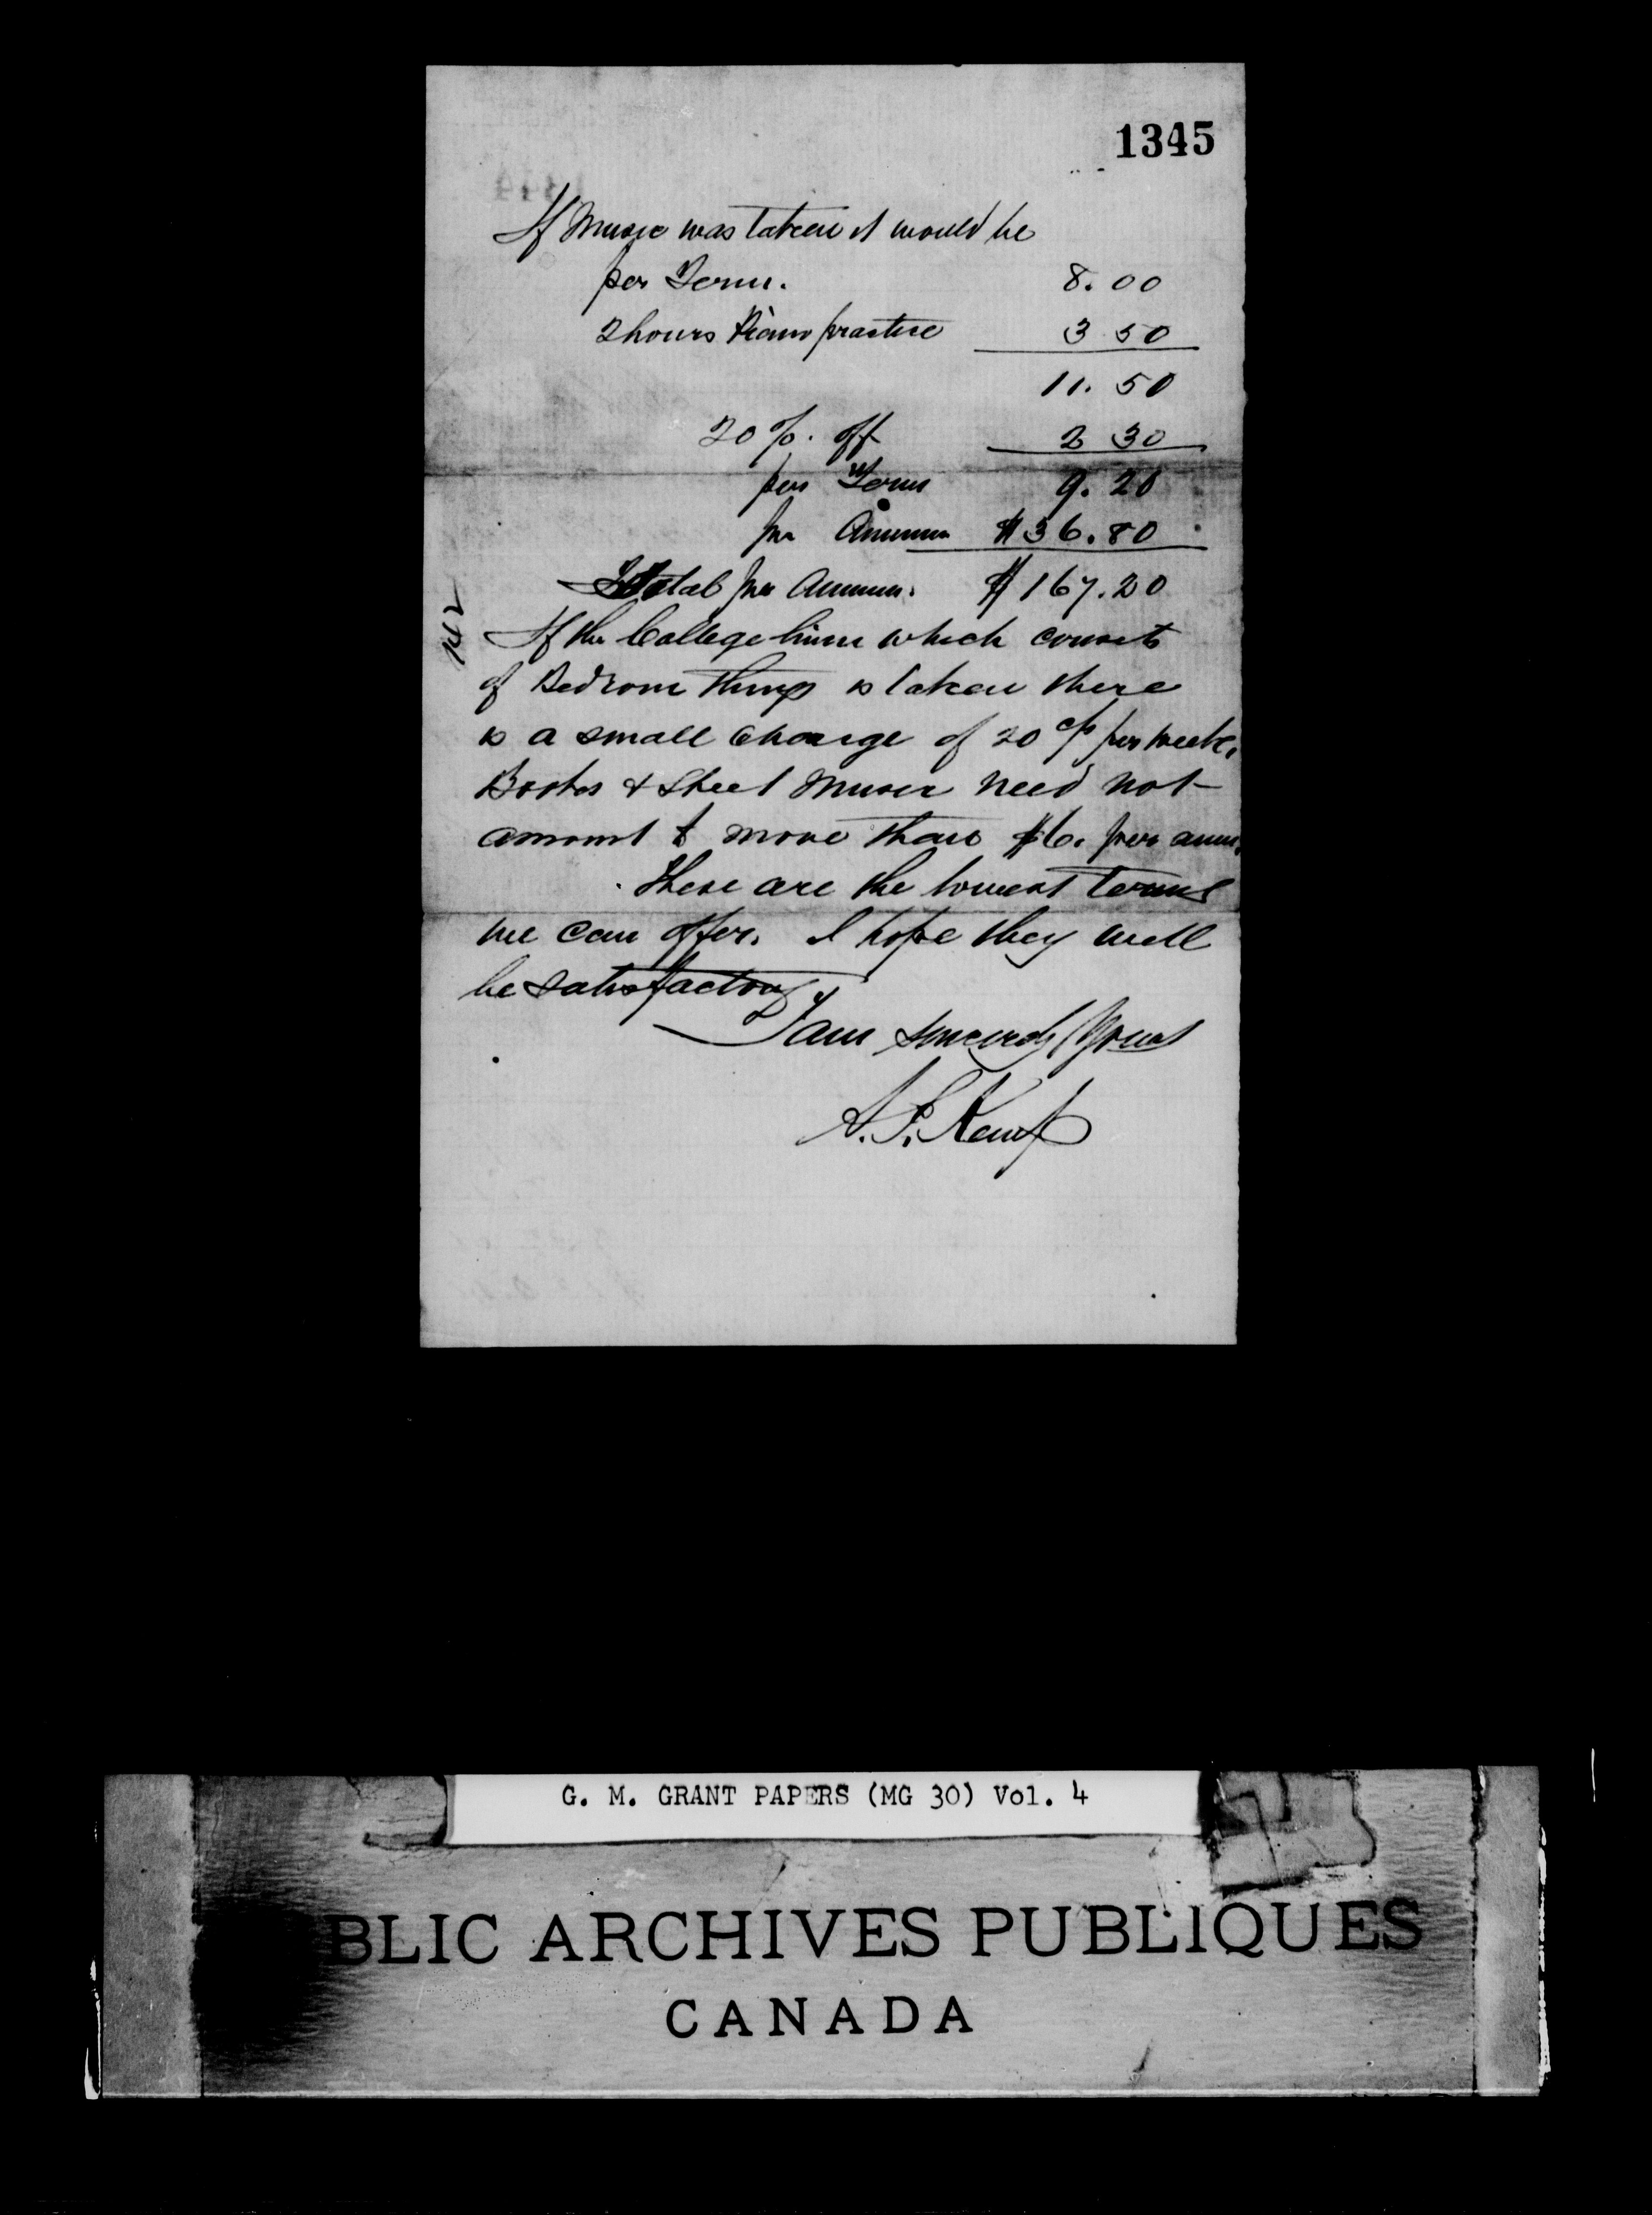 1345
If Music was taken it would be
per Term. 8.00
2 hours Piano practice 3 50
11. 50
20 %. off 2 30
per Term 9. 20
per Annum $36.80
Total per Annum. $167.20
If the College linen which consists
of Bedroom things is taken there
is a small charge of 20 cts per week.
Books & Sheet Music need not
amount to more than $6. per annm.
These are the lowest terms
we can offer. I hope they will
be satisfactory
I am sincerely Yours
A. F. Kemp
G. M. GRANT PAPERS (MG 30) Vol. 4
BLIC ARCHIVES PUBLIQUES
CANADA